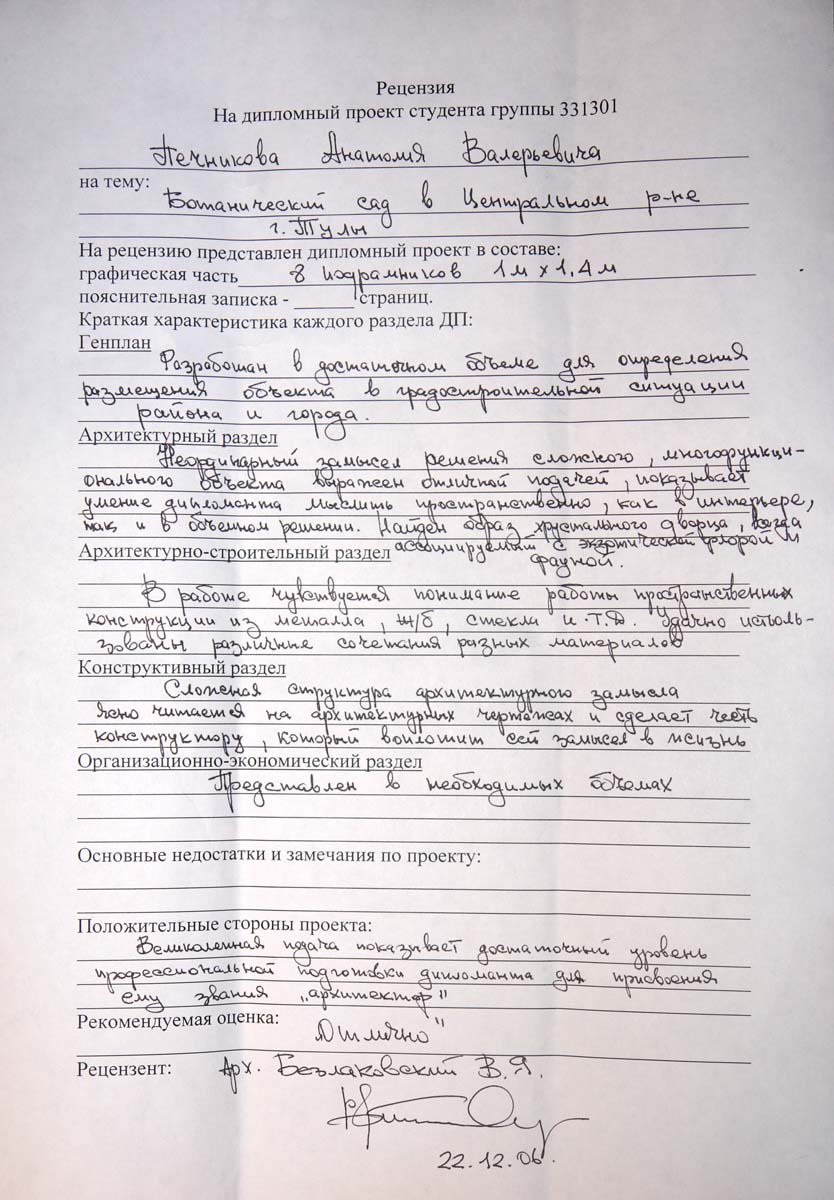 Рецензия
На дипломный проект студента группы 331301
Печникова Анатолия Валерьевича
на тему:
Ботанический сад в Центральном р-не
г. Тулы
На рецензию представлен дипломный проект в составе:
графическая часть 8 подрамников 1м х 1,4м
пояснительная записка - ______ страниц.
Краткая характеристика каждого раздела ДП:
Генплан
Разработан в достаточном объеме для определения
размещения объекта в градостроительной ситуации
района и города.
Архитектурный раздел
Неординарный замысел решения сложного, многофункци-
онального объекта выражен отличной подачей, показывает
умение дипломанта мыслить пространственно, как в интерьере,
так и в объемном решении. Найден образ хрустального дворца, всегда
Архитектурно-строительный раздел ассоциируемый с экзотической флорой и
фауной.
В работе чувствуется понимание работы пространственных
конструкции из металла, ж/б, стекла и т.д. Удачно исполь-
зованы различные сочетания разных материалов
Конструктивный раздел
Сложная структура архитектурного замысла
ясно читается на архитектурных чертежах и сделает честь
конструктору, который воплотит сей замысел в жизнь
Организационно-экономический раздел
Представлен в необходимых объемах
Основные недостатки и замечания по проекту:
Положительные стороны проекта:
Великолепная подача показывает достаточный уровень
профессиональной подготовки дипломанта для присвоения
ему звания "архитектор"
Рекомендуемая оценка:
"Отлично"
Рецензент: Арх. В.Я.
22.12.06.